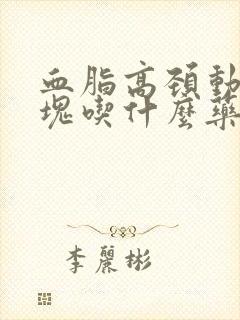 血脂高颈動
塊喫什麼藥
李麗彬